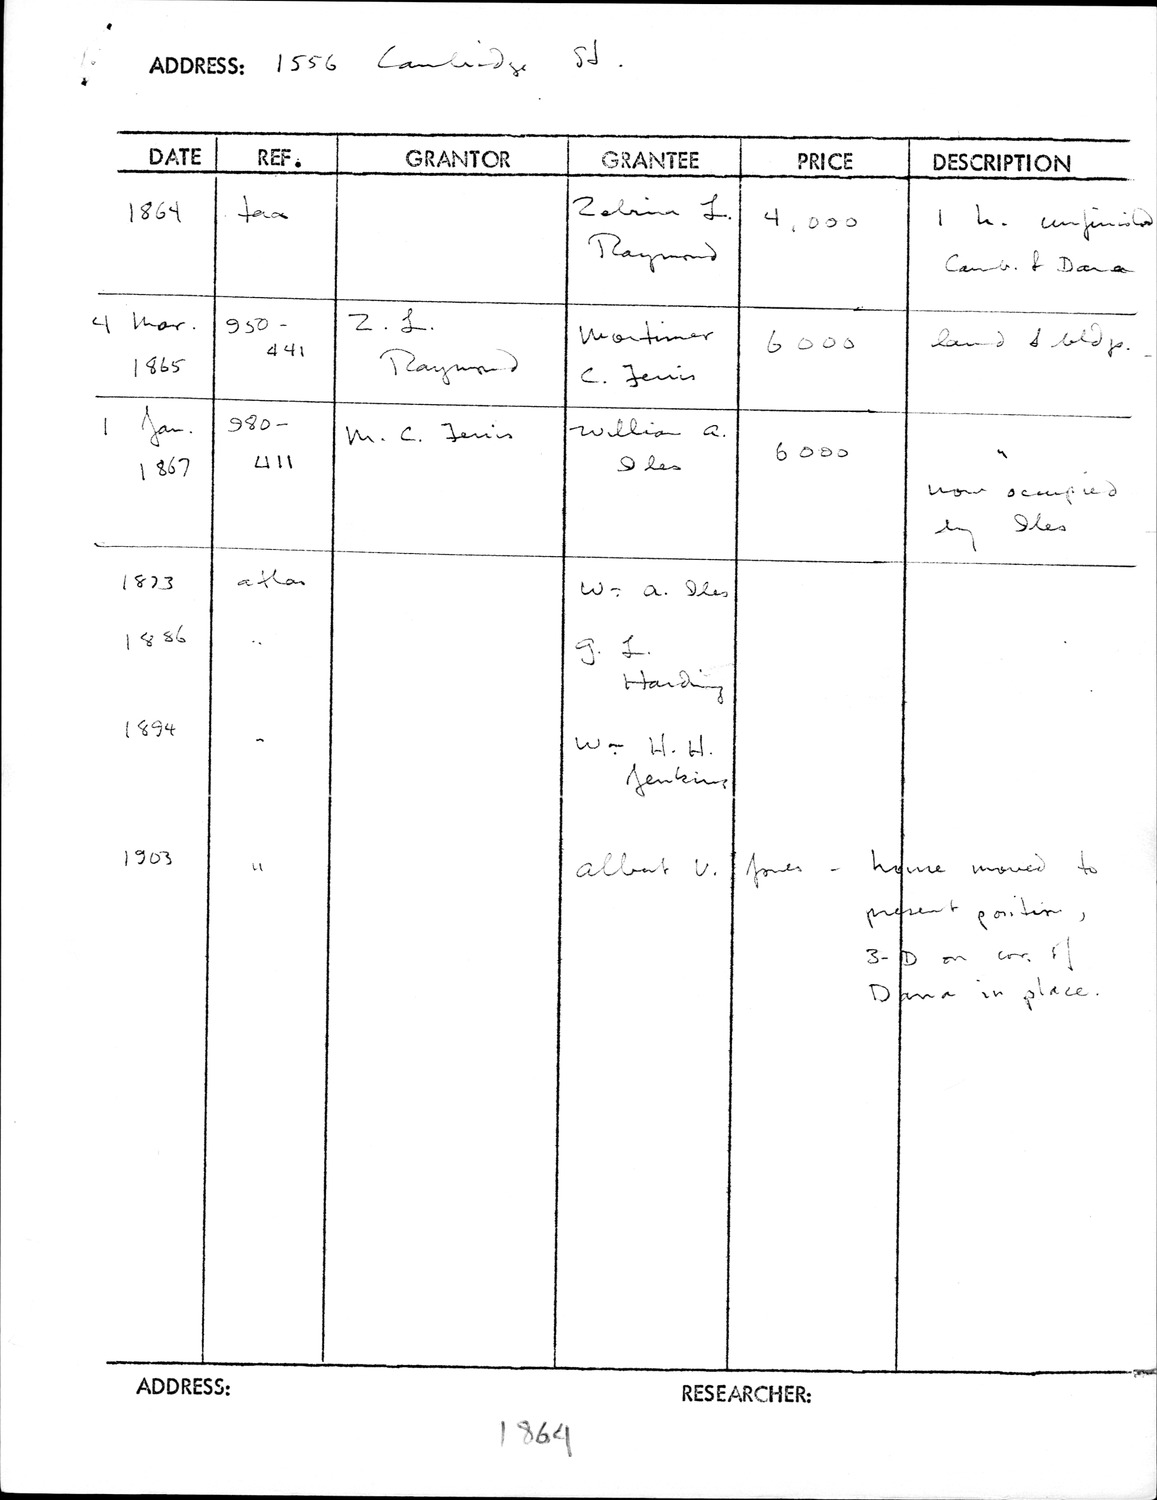 ADDRESS: 1556 Cambridge St.
DATE REF. GRANTOR GRANTEE PRICE DESCRIPTION
1864 tax Zebina L. 4,000 1 h. unfinished
Raymond Camb. & Dana
4 Mar. 950- Z. L. Mortimer 6000 land & bldgs.
1865 441 Raymond C. Ferris
1 Jan. 980- M. C. Ferris William A. 6000 "
1867 411 Iles now occupied
by Iles
1873 atlas Wm A. Iles
1886 " G. L.
Harding
1894 " Wm H. H.
Jenkins
1903 " Albert V. Jones - house moved to
present position,
3-D on cor. of
Dana in place.
ADDRESS: RESEARCHER:
1864